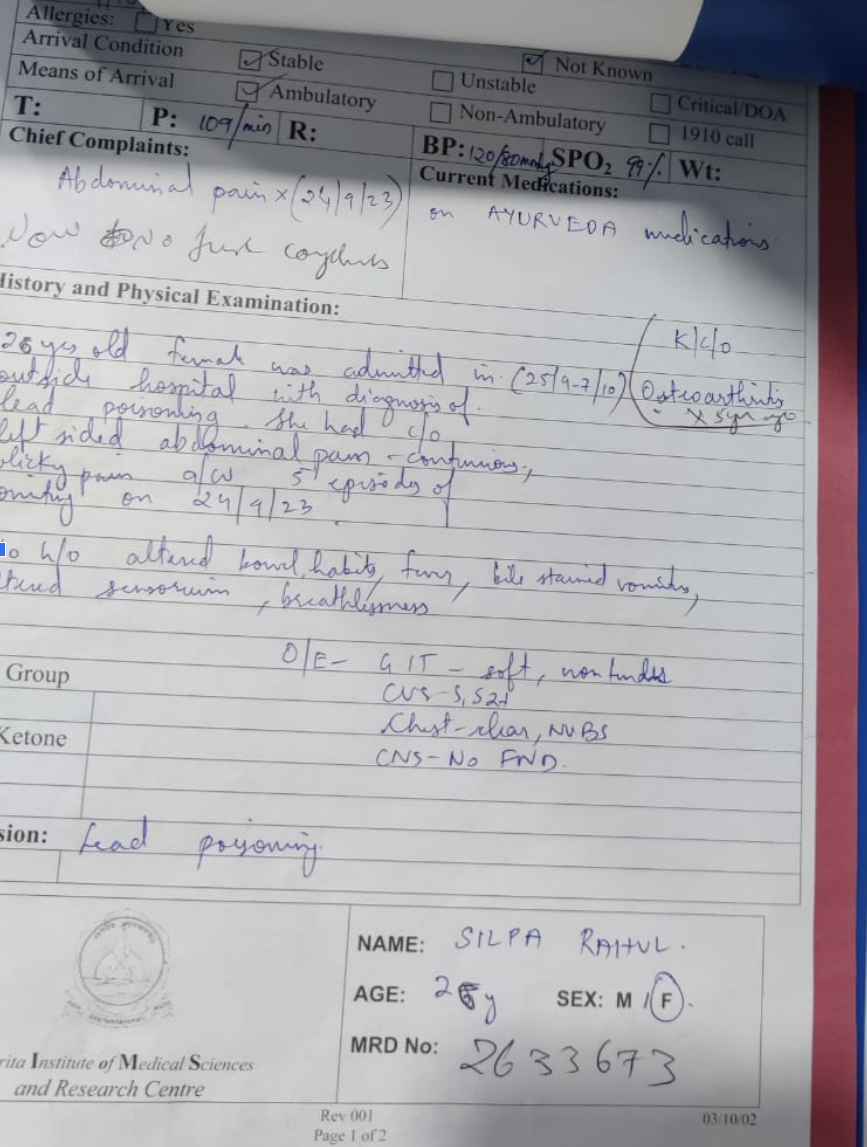 Allergies: Yes Not Known
Arrival Condition Stable Unstable Critical/DOA
Means of Arrival Ambulatory Non-Ambulatory 1910 call
T: P: 109/min R: BP: 120/80mmHg SPO2 99% Wt:
Chief Complaints:
Abdominal pain x (24/9/23)
Now No
Current Medications:
on AYURVEDA medications.
History and Physical Examination:
K/c/o
Osteoarthritis
x 5yr
yrs old female was admitted in (25/9-7/10)
outside hospital with diagnosis of
lead poisoning. She had c/o
left sided abdominal pain - continuous,
colicky pain a/w 5 episodes of
vomiting on 24/9/23.
No h/o altered bowel habits, fever, bile stained vomitus,
altered sensorium, breathlessness
O/E- GIT - soft, non tender
CVS- S1S2+
Chest- clear, NVBS
CNS- No FND.
Group
Ketone
sion: Lead poisoning.
NAME: SILPA RAHUL.
AGE: y SEX: M / F
MRD No: 2633673
rita Institute of Medical Sciences
and Research Centre
Rev 001
Page 1 of 2
03/10/02